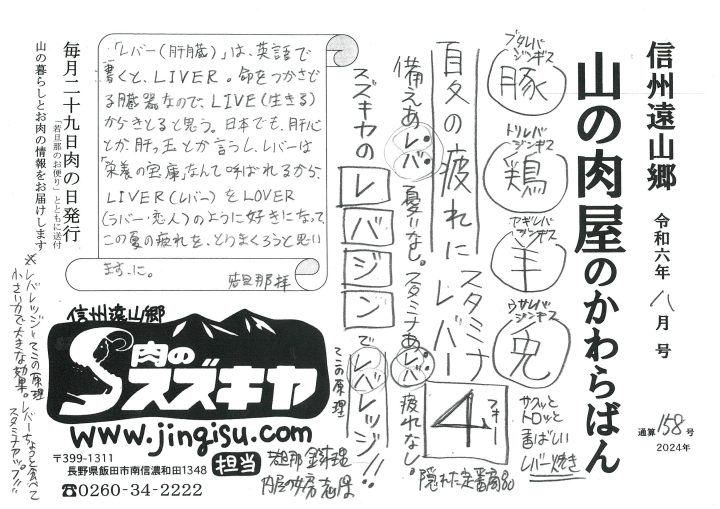 信州遠山郷 令和六年八月号
山の肉屋のかわらばん
通算158号
2024年
ブタレバジンギス
豚
トリレバジンギス
鶏
ヤギレバジンギス
羊
ウサレバジンギス
兎
サクッと
トロッと
香ばしい
レバー焼き
夏の疲れにスタミナレバー
4
フォー
隠れた定番商品
備えあレバ憂いなし。スタミナあレバ疲れなし。
スズキヤのレバジンでレバレッジ!!
てこの原理
「レバー(肝臓)」は、英語で
書くと、LIVER。命をつかさど
る臓器なので、LIVE(生きる)
からきとると思う。日本でも、肝心
とか、肝っ玉とか言うし、レバーは
「栄養の宝庫」なんて呼ばれるから、
LIVER(レバー)をLOVER
(ラバー・恋人)のように好きになって
この夏の疲れを、とりまくろうと思い
ます…に。
若旦那拝
毎月二十九日肉の日発行
「若旦那のお便り」とともに送付
山の暮らしとお肉の情報をお届けします
※レバレッジ=てこの原理
小さい力で大きな効果。レバーちょっと食べて
スタミナアップ!!
信州遠山郷
肉のスズキヤ
www.jingisu.com
〒399-1311
長野県飯田市南信濃和田1348
☎0260-34-2222
担当
若旦那
肉屋の女房